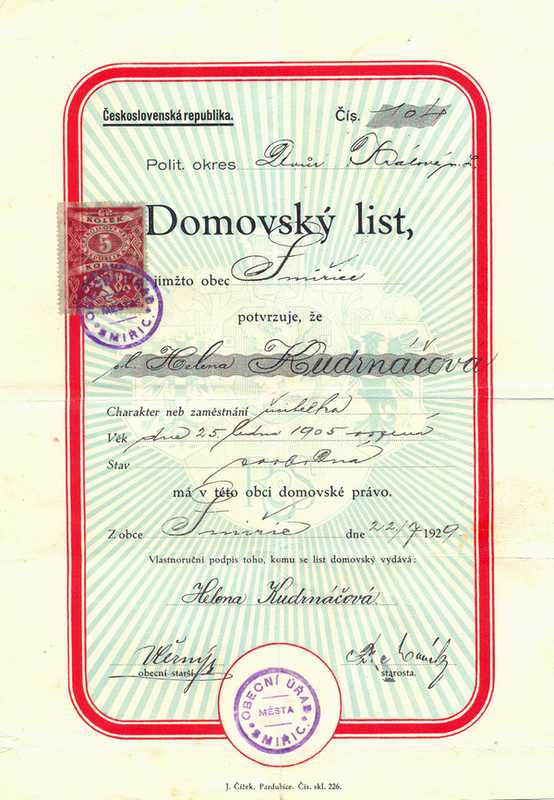 Československá republika.
Čís. 104
Polit. okres Dvůr Králové n. L.
Domovský list,
KOLEK
5
KORUN
jímžto obec Smiřice
potvrzuje, že
sl. Helena Kudrnáčová
Charakter neb zaměstnání učitelka
Věk dne 25. ledna 1905 rozená
Stav svobodná
má v této obci domovské právo.
Z obce Smiřic dne 22/7 1929
Vlastnoruční podpis toho, komu se list domovský vydává:
Helena Kudrnáčová
obecní starší.
starosta.
OBECNÍ ÚŘAD
MĚSTA
SMIŘIC.
J. Čížek, Pardubice. Čís. skl. 226.